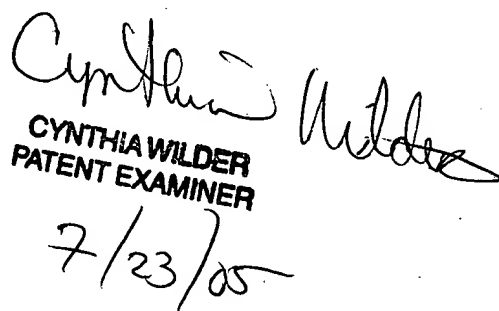 Cynthia Wilder
CYNTHIA WILDER
PATENT EXAMINER
7/23/05